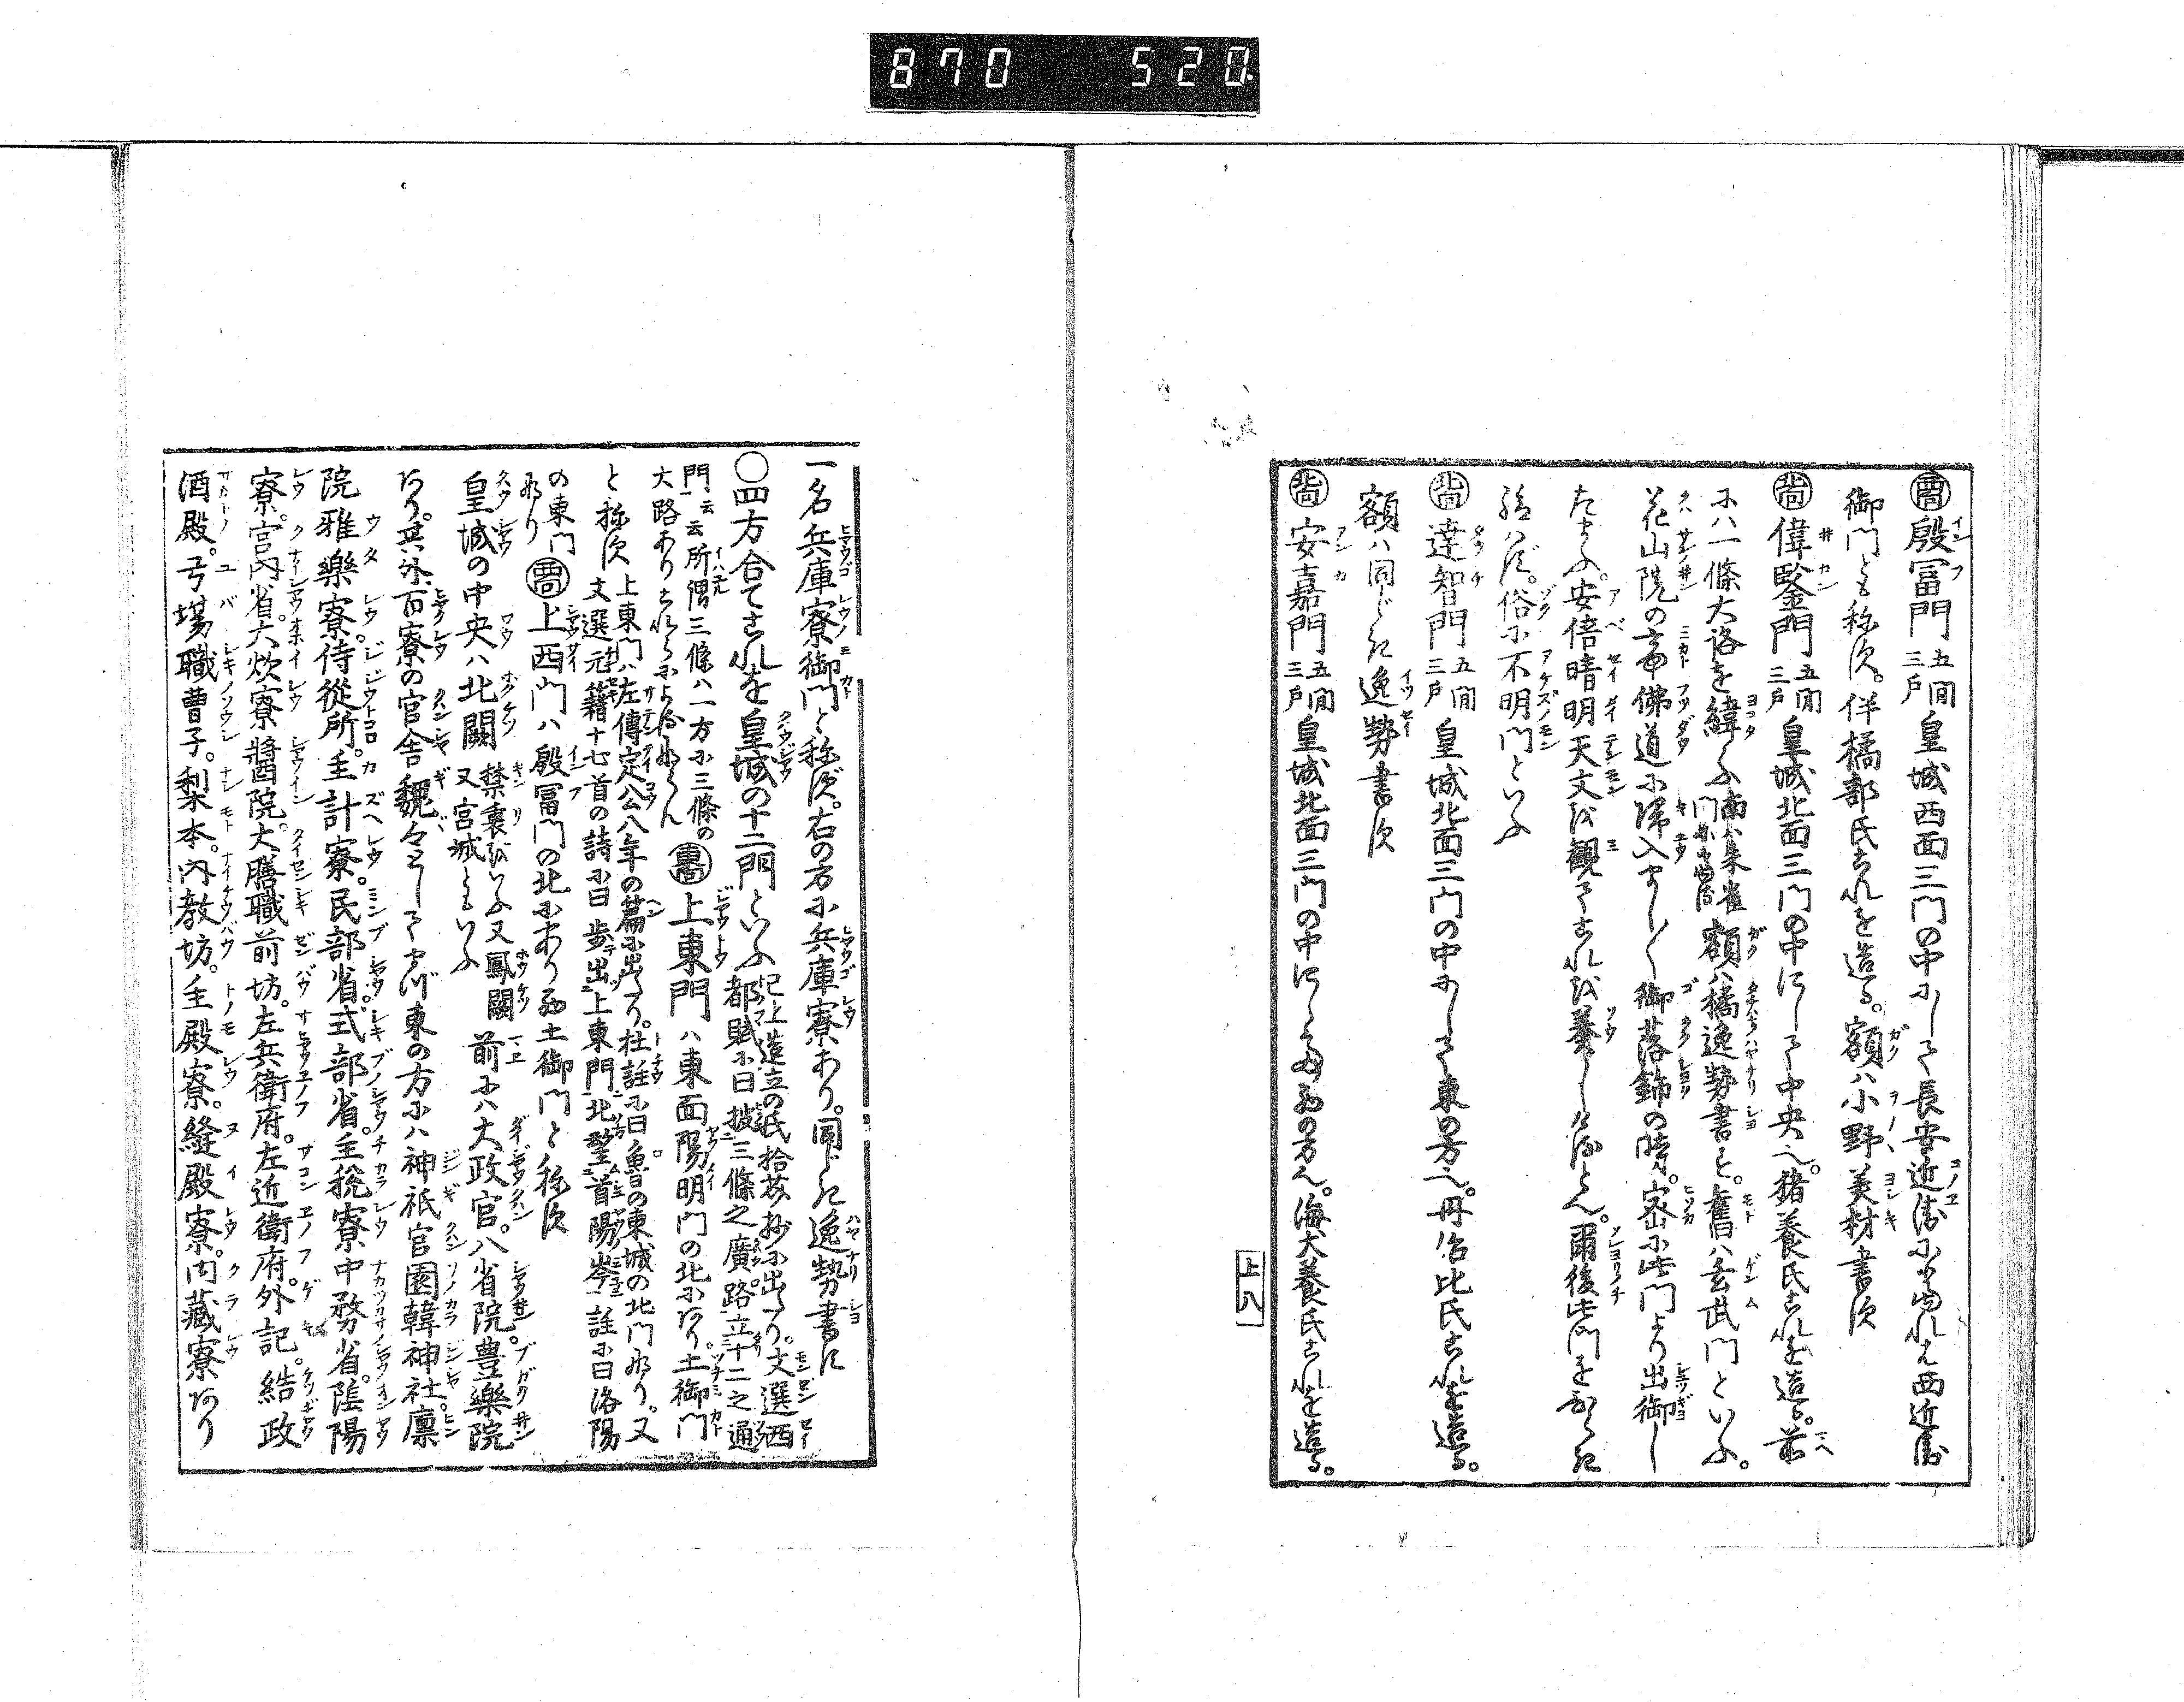 870 520
西面 殷冨門 五間三戸 皇城西面三門の中にして長安近衛に当れは西近衛
御門とも称す。伴橘部氏これを造る。額ハ小野美材書す
北面 偉鑒門 五間三戸 皇城北面三門の中にして中央也。猪養氏これを造る。前
にハ一條大路を緯ふ 額ハ橘逸勢書と。舊ハ玄武門といふ。
花山院の帝佛道に帰入まし〳〵御落餝の時。密に此門より出御し
たまふ。安倍晴明天文を観てこれを奏し 爾後此門を
給ハず。俗に不明門といふ
北面 達智門 五間三戸 皇城北面三門の中にして東の方也。丹治比氏これを造る。
額ハ同じく逸勢書す
北面 安嘉門 五間三戸 皇城北面三門の中にして西の方也。海犬養氏これを造る。
上八
一名兵庫寮御門と称ず。右の方に兵庫寮あり。同じく逸勢書す
〇四方合てこれを皇城の十二門といふ 已上造立の氏拾芥抄に出たり。文選西
都賦に曰披三條之廣路立十二之通
門云云所謂三條ハ一方に三條の
大路ありこれらによるならん 東面 上東門ハ東面陽明門の北にあり。土御門
と称す 上東門ハ左傳定公八年の篇に出たり。杜註に曰魯の東城の北門なり。又
文選元籍十七首の詩に曰歩出上東門北望首陽岑註に曰洛陽
の東門
なり 西面 上西門ハ殷冨門の北にあり西土御門と称す
皇城の中央ハ北闕 禁裏をいふ又鳳闕
又宮城ともいふ 前にハ大政官。八省院。豊樂院
あり。其外百寮の官舎魏々として先づ東の方にハ神祇官園韓神社。廩
院雅樂寮侍從所。主計寮。民部省。式部省。主税寮中務省。陰陽
寮。宮内省。大炊寮醬院。大膳職前坊。左兵衛府。左近衛府。外記。結政
酒殿。弓場職曹子。梨本。内教坊。主殿寮。縫殿寮。内藏寮あり